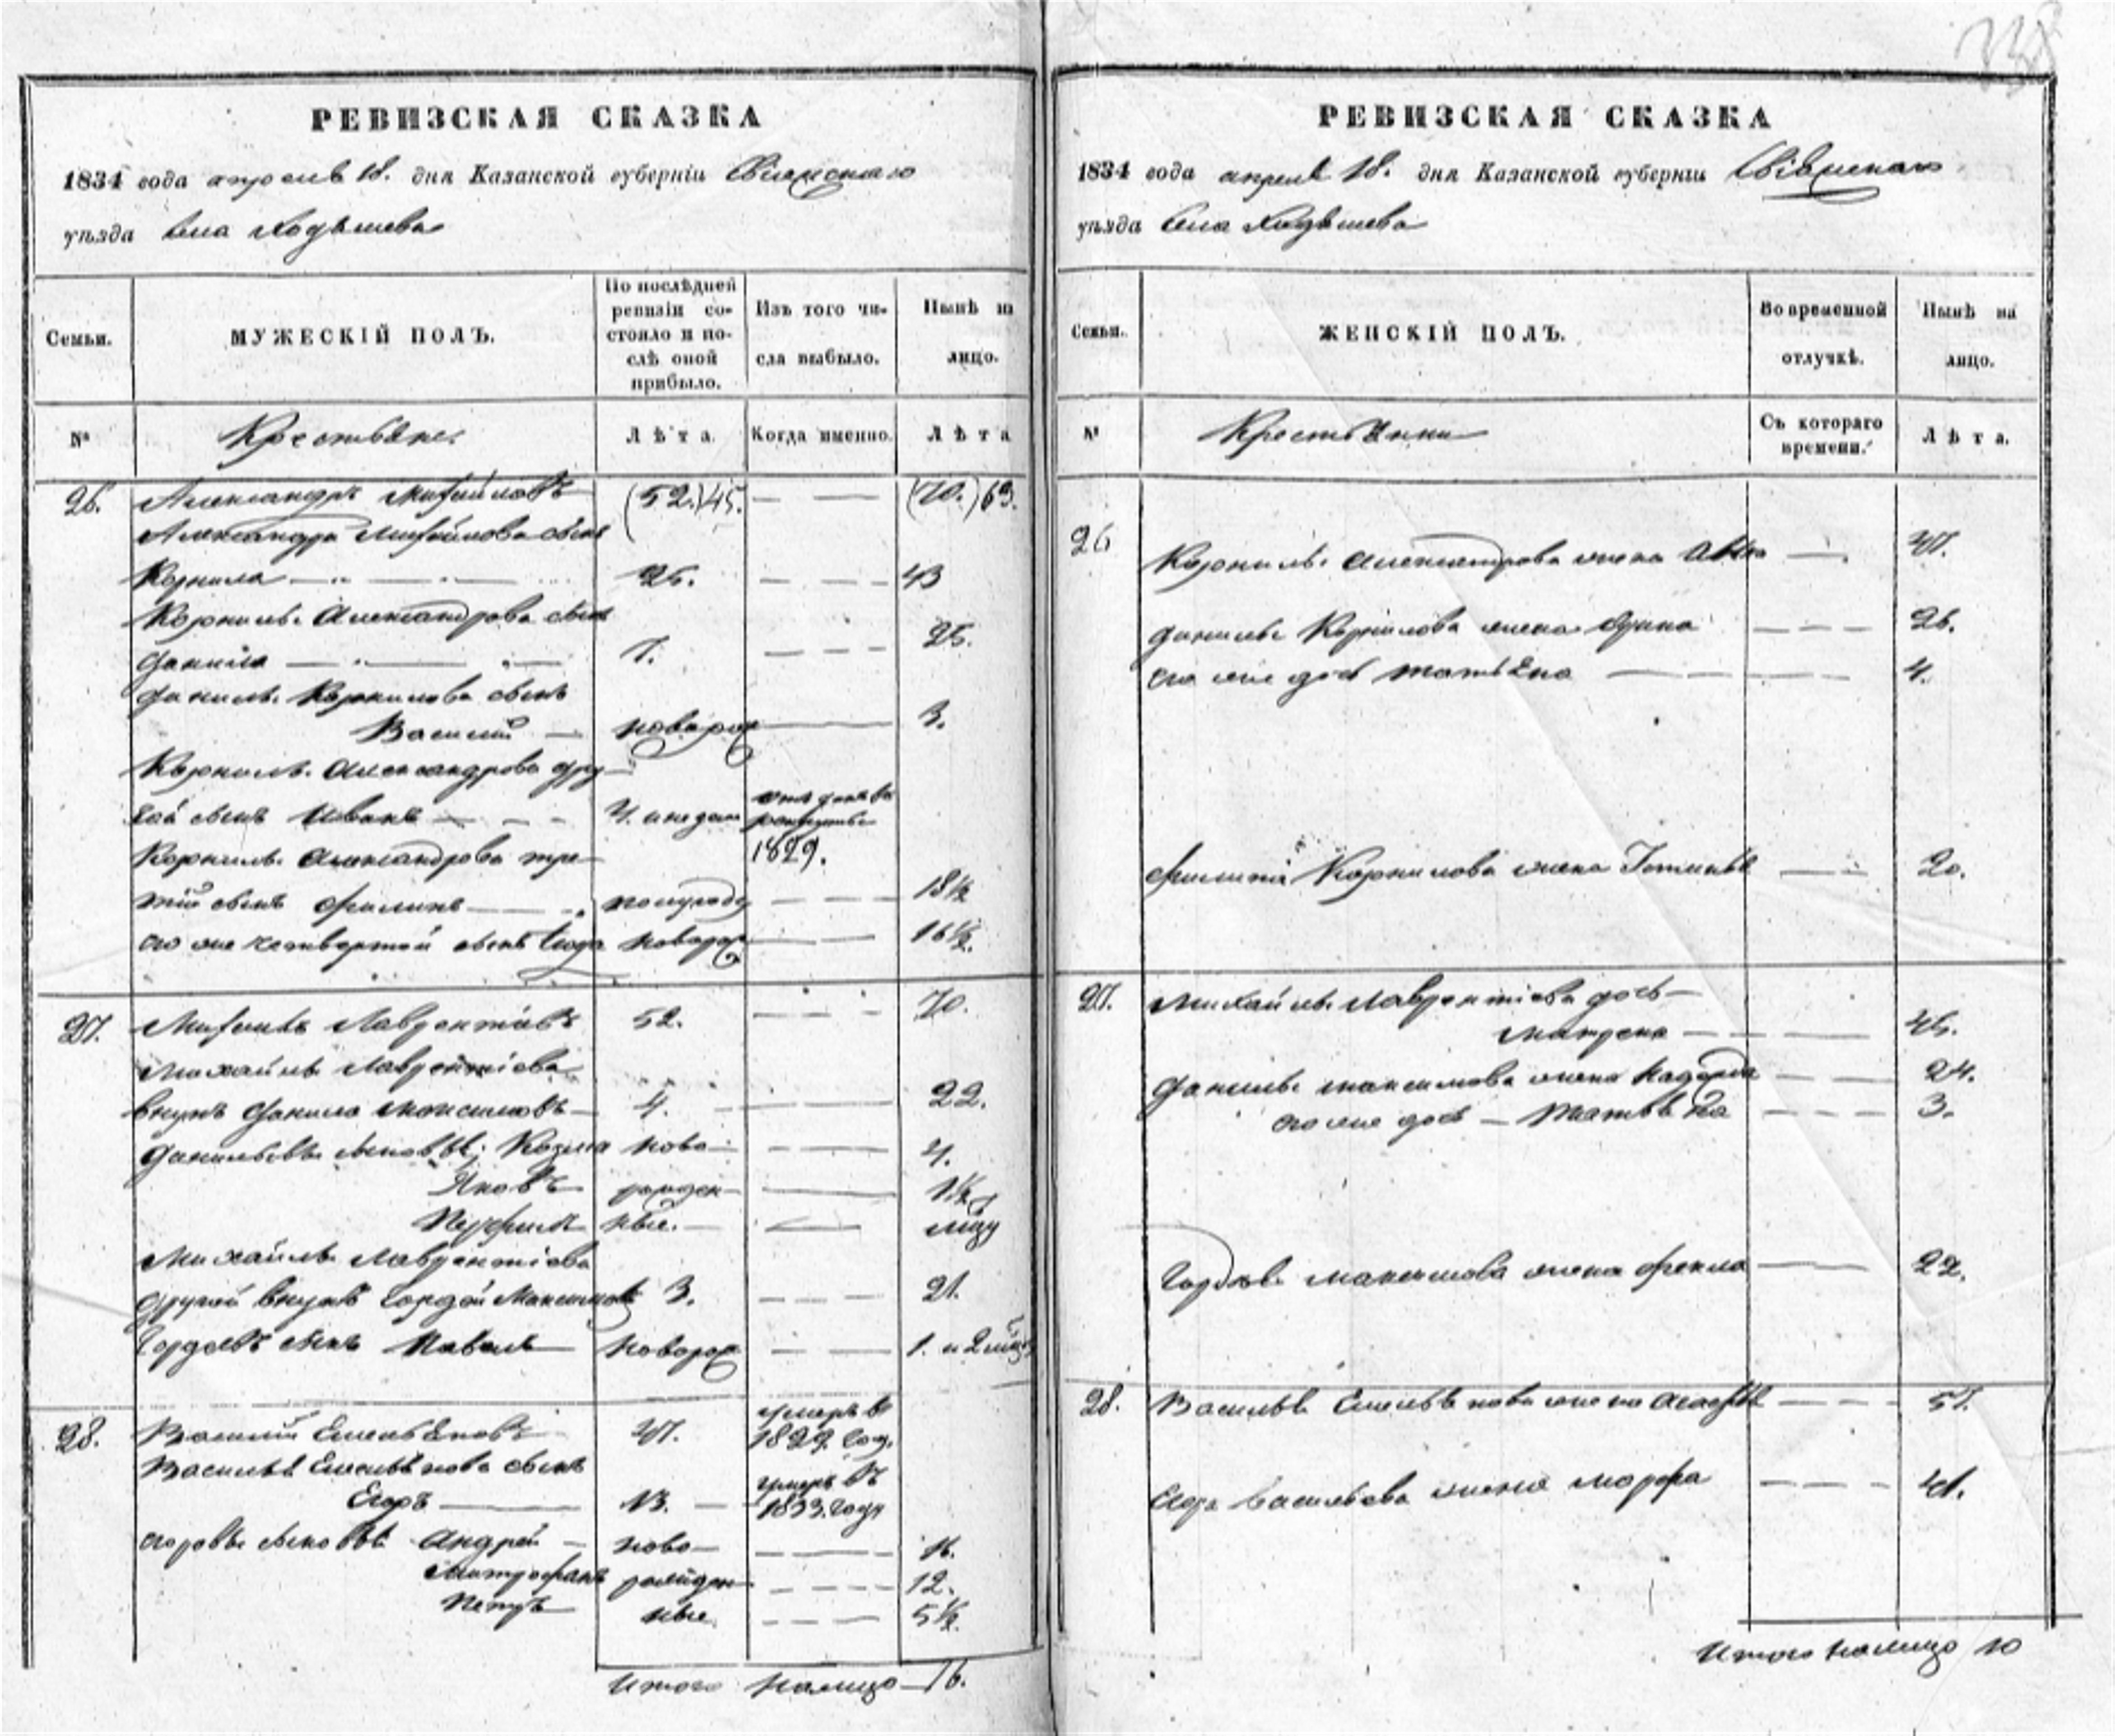 338
РЕВИЗСКАЯ СКАЗКА
1834 года апреля 18. дня Казанской губерніи Свіяжскаго
уѣзда Села Ходяшева
Семьи.
МУЖЕСКІЙ ПОЛЪ.
По послѣдней ревизіи состояло и послѣ оной прибыло.
Изъ того числа выбыло.
Нынѣ на лицо.
№
Крестьяне.
Лѣта.
Когда именно.
Лѣта
26. Александръ Михайловъ (52.) 45. — — (70.) 63.
Александра Михайлова сынъ
Корнила 25. — — 43
Корнилы Александрова сынъ
Данила 7. — — 25.
Данилы Корнилова сынъ
Василий — новорож — 3.
Корнилы Александрова дру-
гой сынъ Иванъ 1829.
Корнилы Александрова тре-
тій сынъ Филипъ полугоду — — 18½
его же четвертой сынъ новорож — — 16½.
27. Михайла Лаврентьевъ 52. — — 70.
Михайлы Лаврентіева
внукъ Данило Максимовъ 4. — — 22.
Даниловы сыновья; Козма ново- — — 4.
Яковъ рожден- — 1½
Перфилъ ные. —
Михайлы Лаврентіева
другой внукъ Гордей Максимовъ 3. — — 21.
Гордеевъ сынъ Павелъ новорож — — 1. и 2 мѣс
28. Василий Емельяновъ 37. умеръ въ 1829. год.
Василья Емельянова сынъ
Егоръ 13. — умеръ въ 1833. году
Егоровы сыновья Андрей — ново- — 16.
Митрофанъ рожден- — — 12.
Петръ ные — — 5½.
Итого налицо 16.
РЕВИЗСКАЯ СКАЗКА
1834 года апреля 18. дня Казанской губерніи Свіяжскаго
уѣзда Села Ходяшева
Семьи.
ЖЕНСКІЙ ПОЛЪ.
Во временной отлучкѣ.
Нынѣ на лицо.
№
Крестьянки
Съ котораго времени.
Лѣта.
26 Корнилы Александрова жена — 47.
Данилы Корнилова жена Арина — — 26.
его же дочь Татьяна — — 4.
Филипа Корнилова жена — — 20.
27. Михайлы Лаврентіева дочь —
Матрена — — 45.
Данилы Максимова жена — — 24.
его же дочь — Татьяна — — 3.
Гордея Максимова жена Фекла — — 22.
28. Василья Емельянова жена — — 57.
Егора Васильева жена Марфа — — 41.
Итого налицо 10